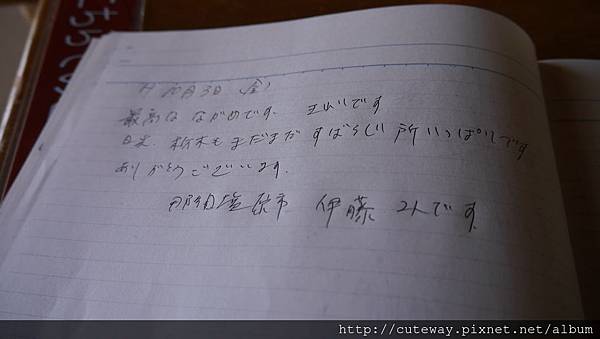 10月3日 (金)
最高な ながめです. です
日光. 栃木も まだまだ すばらしい 所 いっぱいです
ありがとうございます.
那須塩原市 伊藤 2人です.
http://cuteway.pixnet.net/album